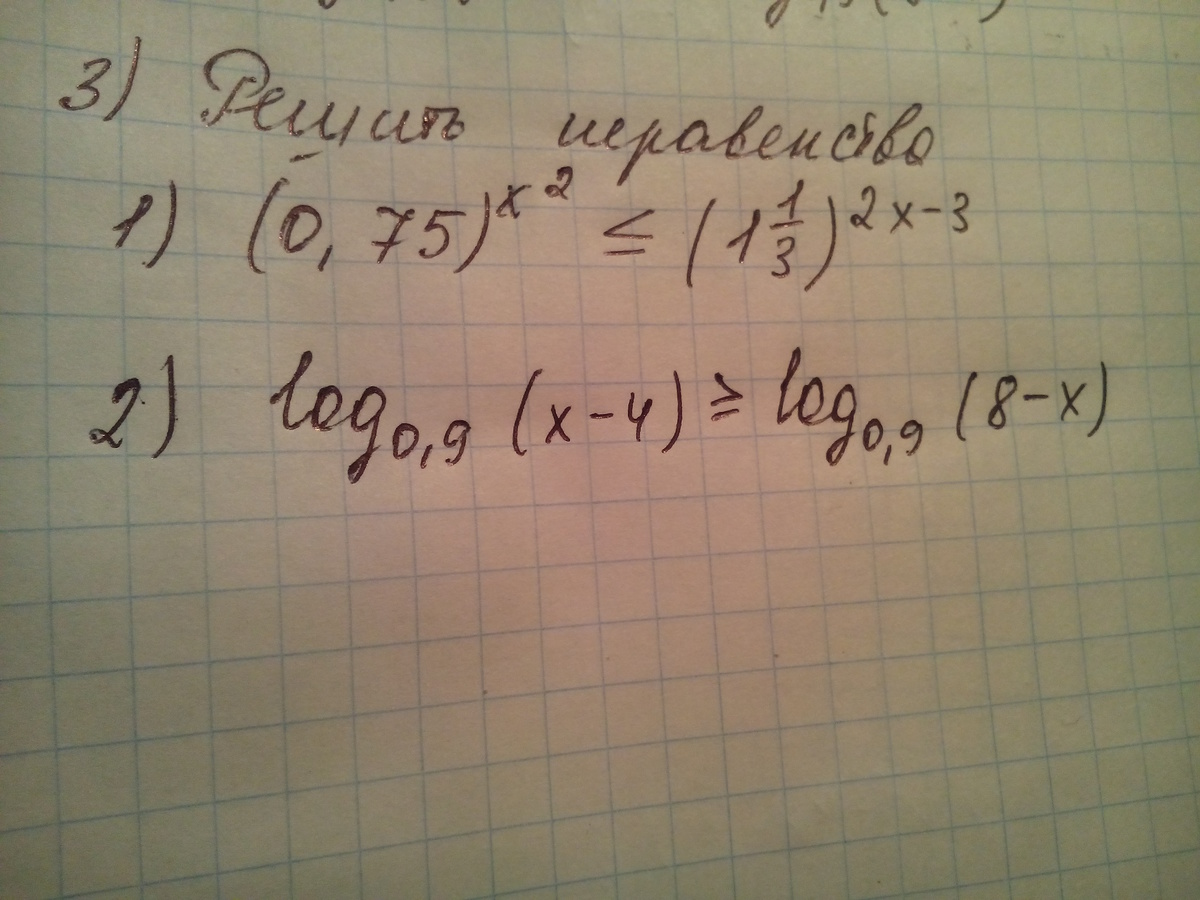 3) Решить неравенство
1) (0,75)^x^2 ≤ (1 1/3)^2x-3
2) log_0,9 (x-4) ≥ log_0,9 (8-x)